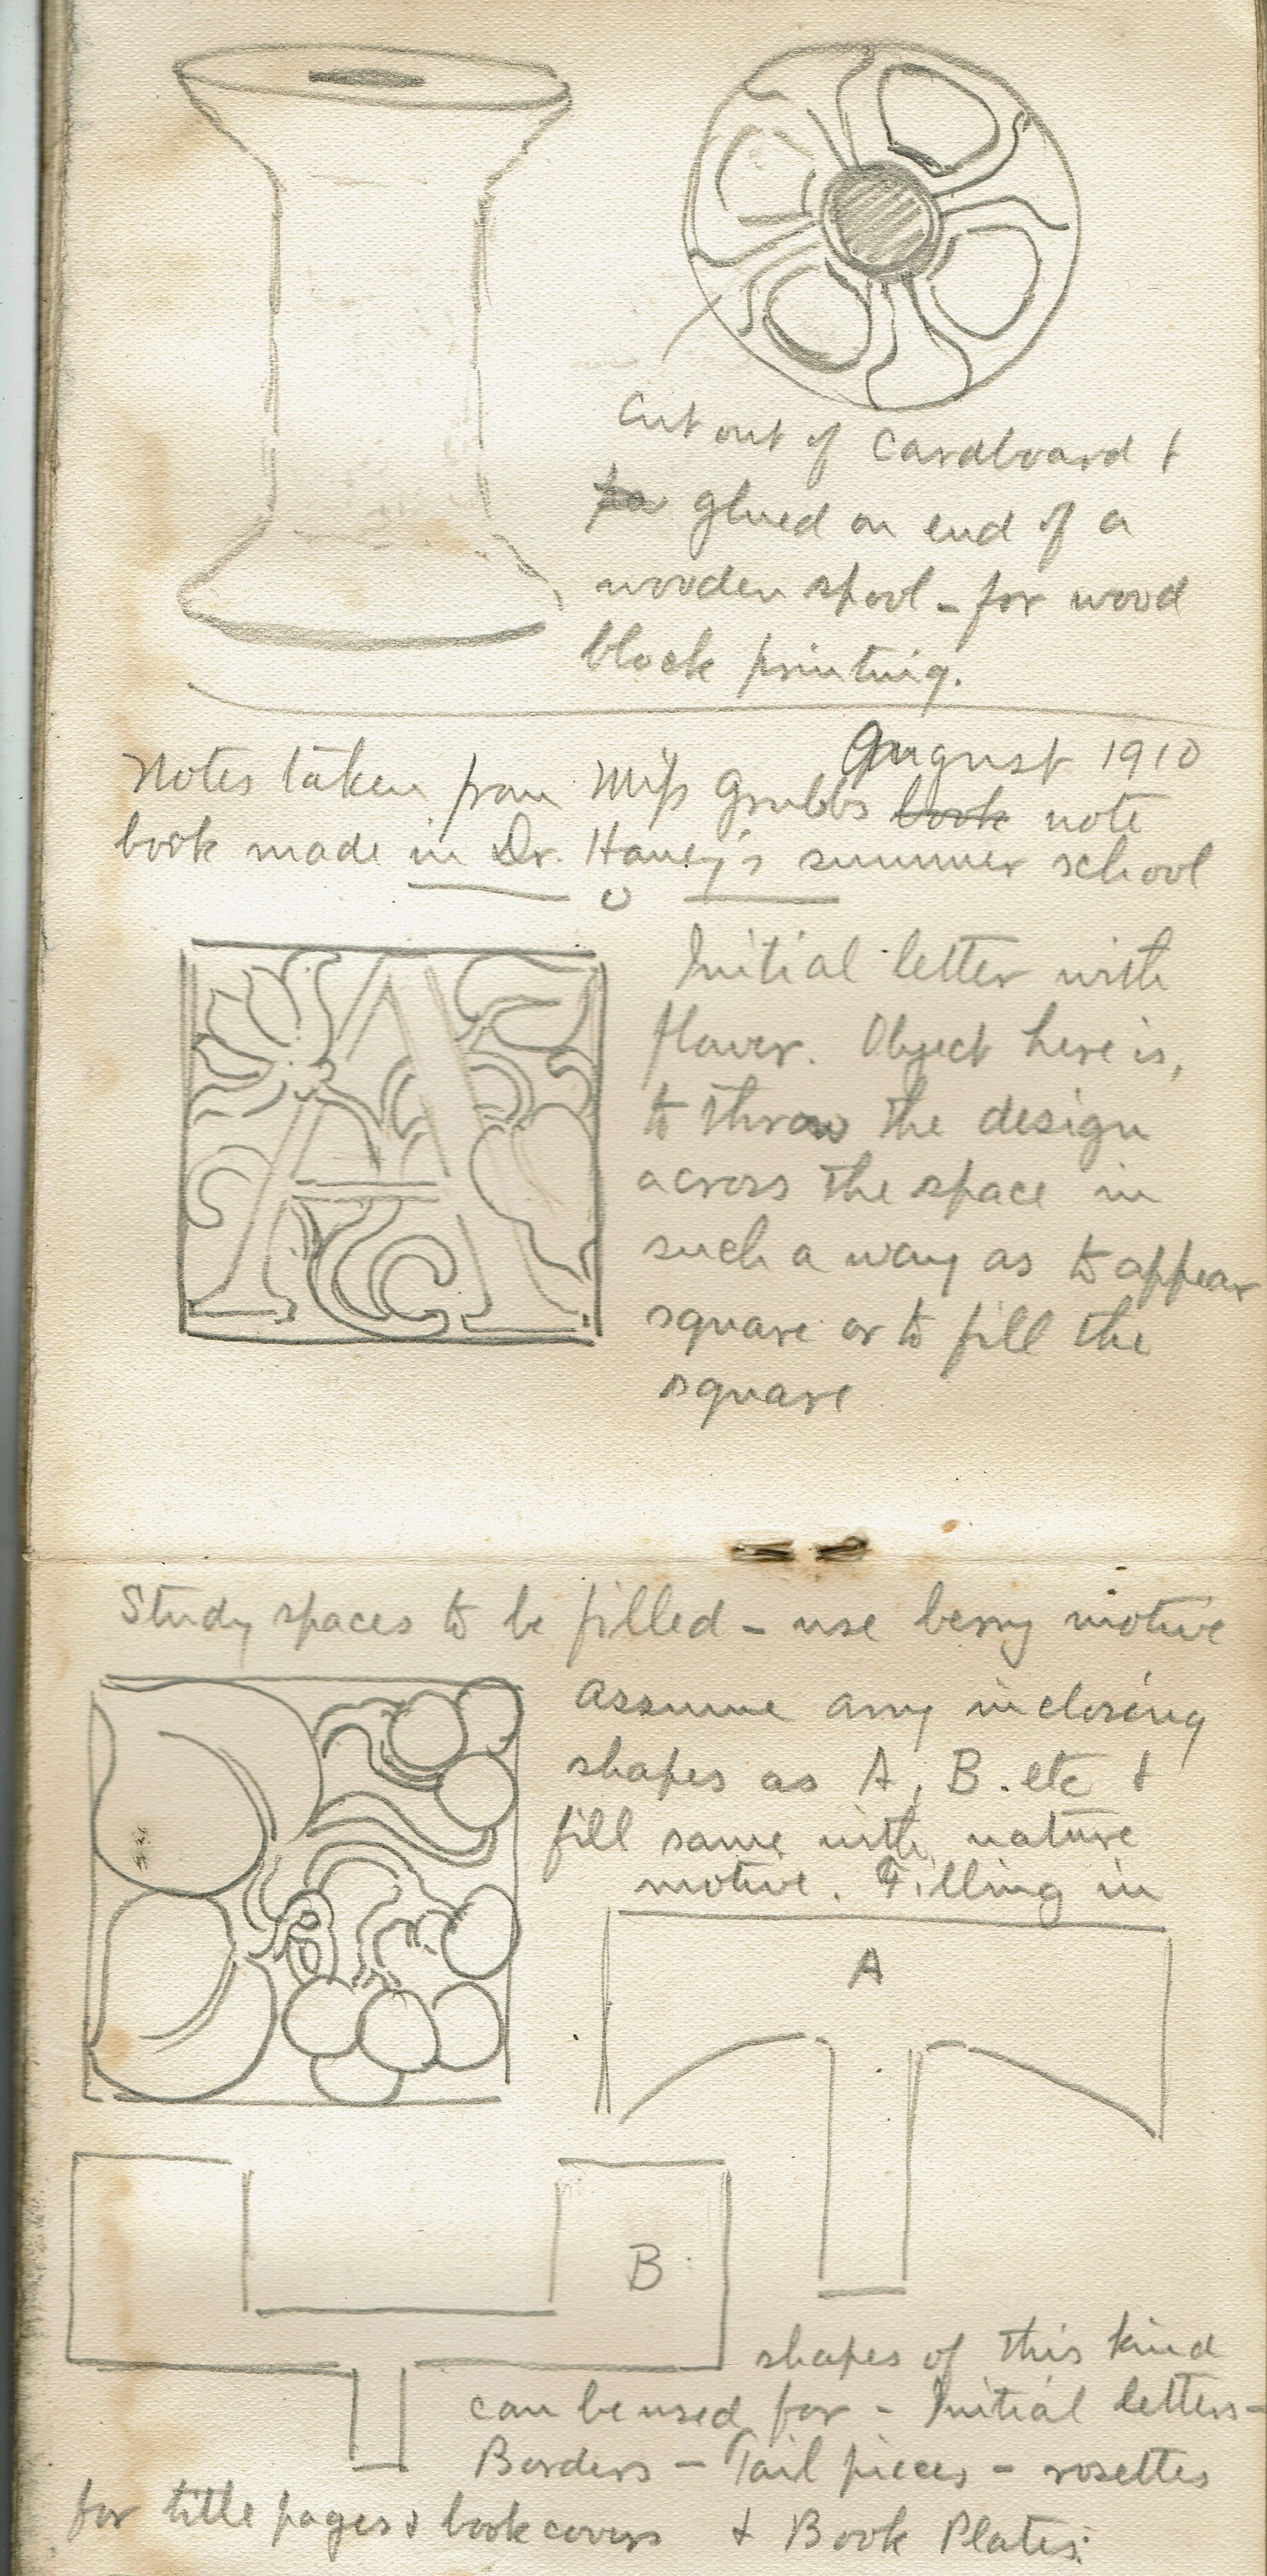 Cut out of Cardboard &
glued on end of a
wooden spool - for wood
block printing.
August 1910
Notes taken from Miss Grubbs book note
book made in Dr. Haney's summer school
A
Initial letter with
flower. Object here is,
to throw the design
across the space in
such a way as to appear
square or to fill the
square
Study spaces to be filled - use berry motive
assume any inclosing
shapes as A, B. etc &
fill same with nature
motive. Filling in
A
B
shapes of this kind
can be used for - Initial letters -
Borders - Tail pieces - rosettes
for title pages & book covers & Book Plates.